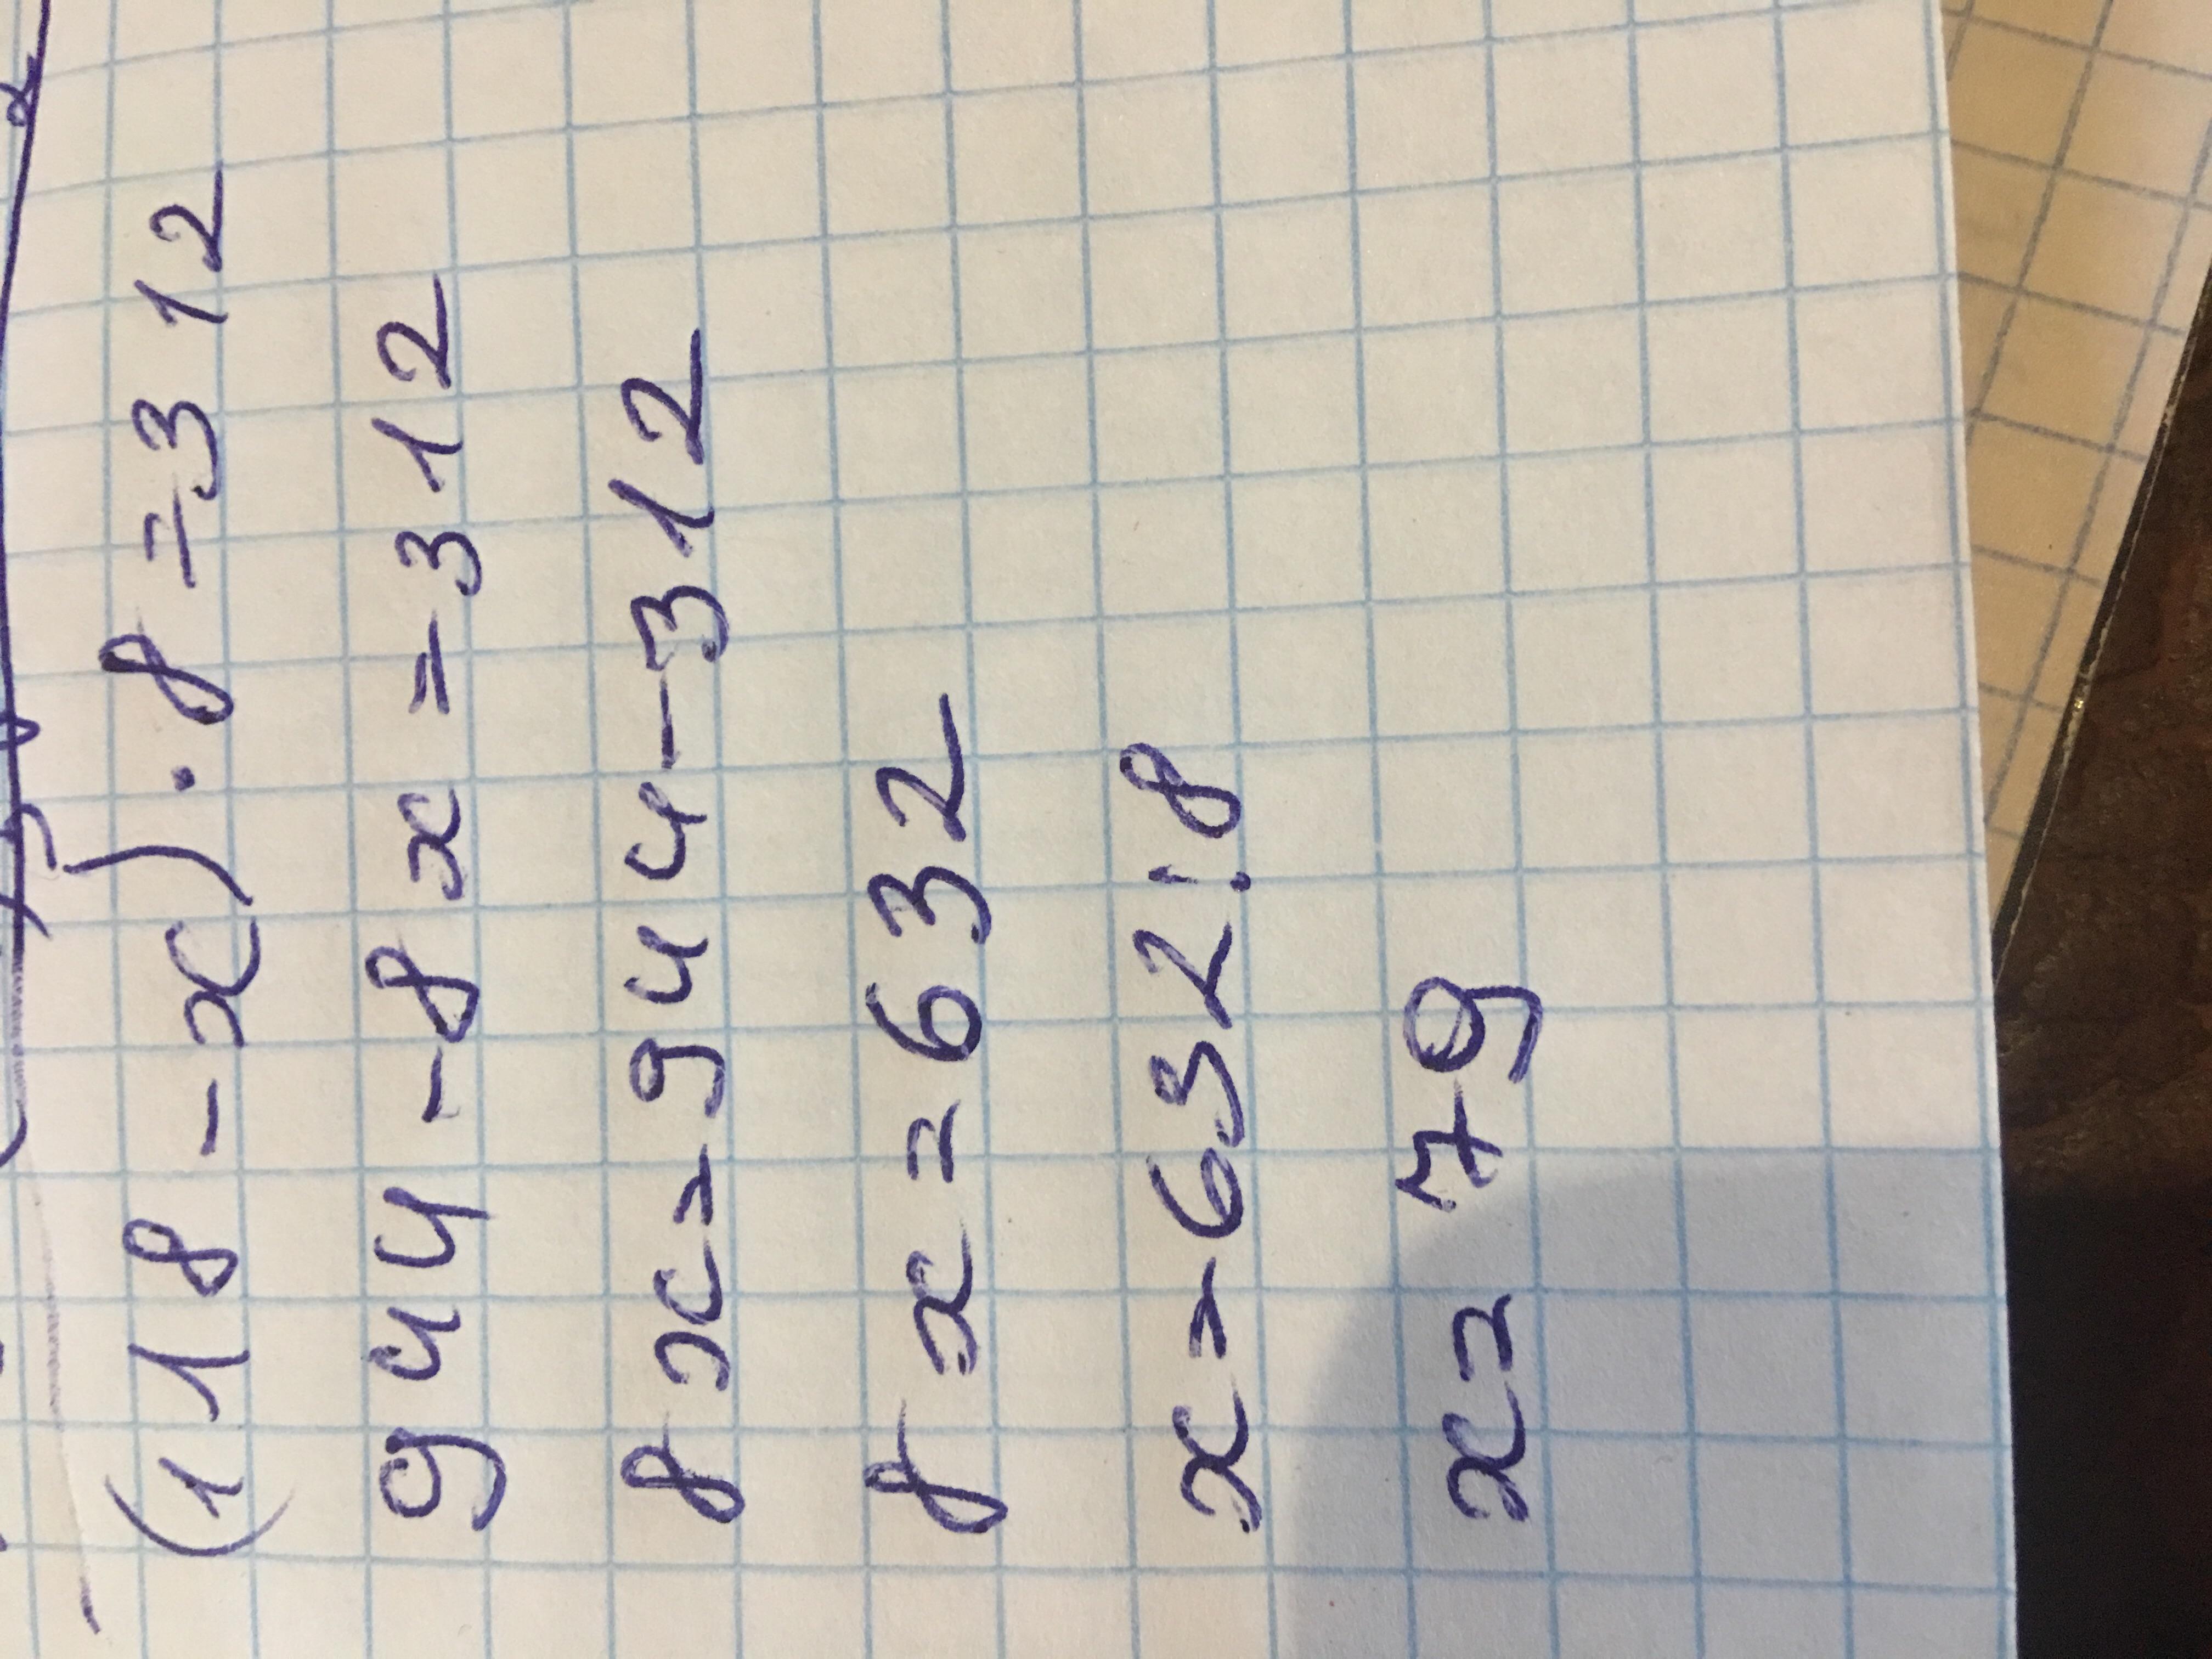 (118-x)·8=312
944-8x=312
8x=944-312
8x=632
x=632:8
x=79